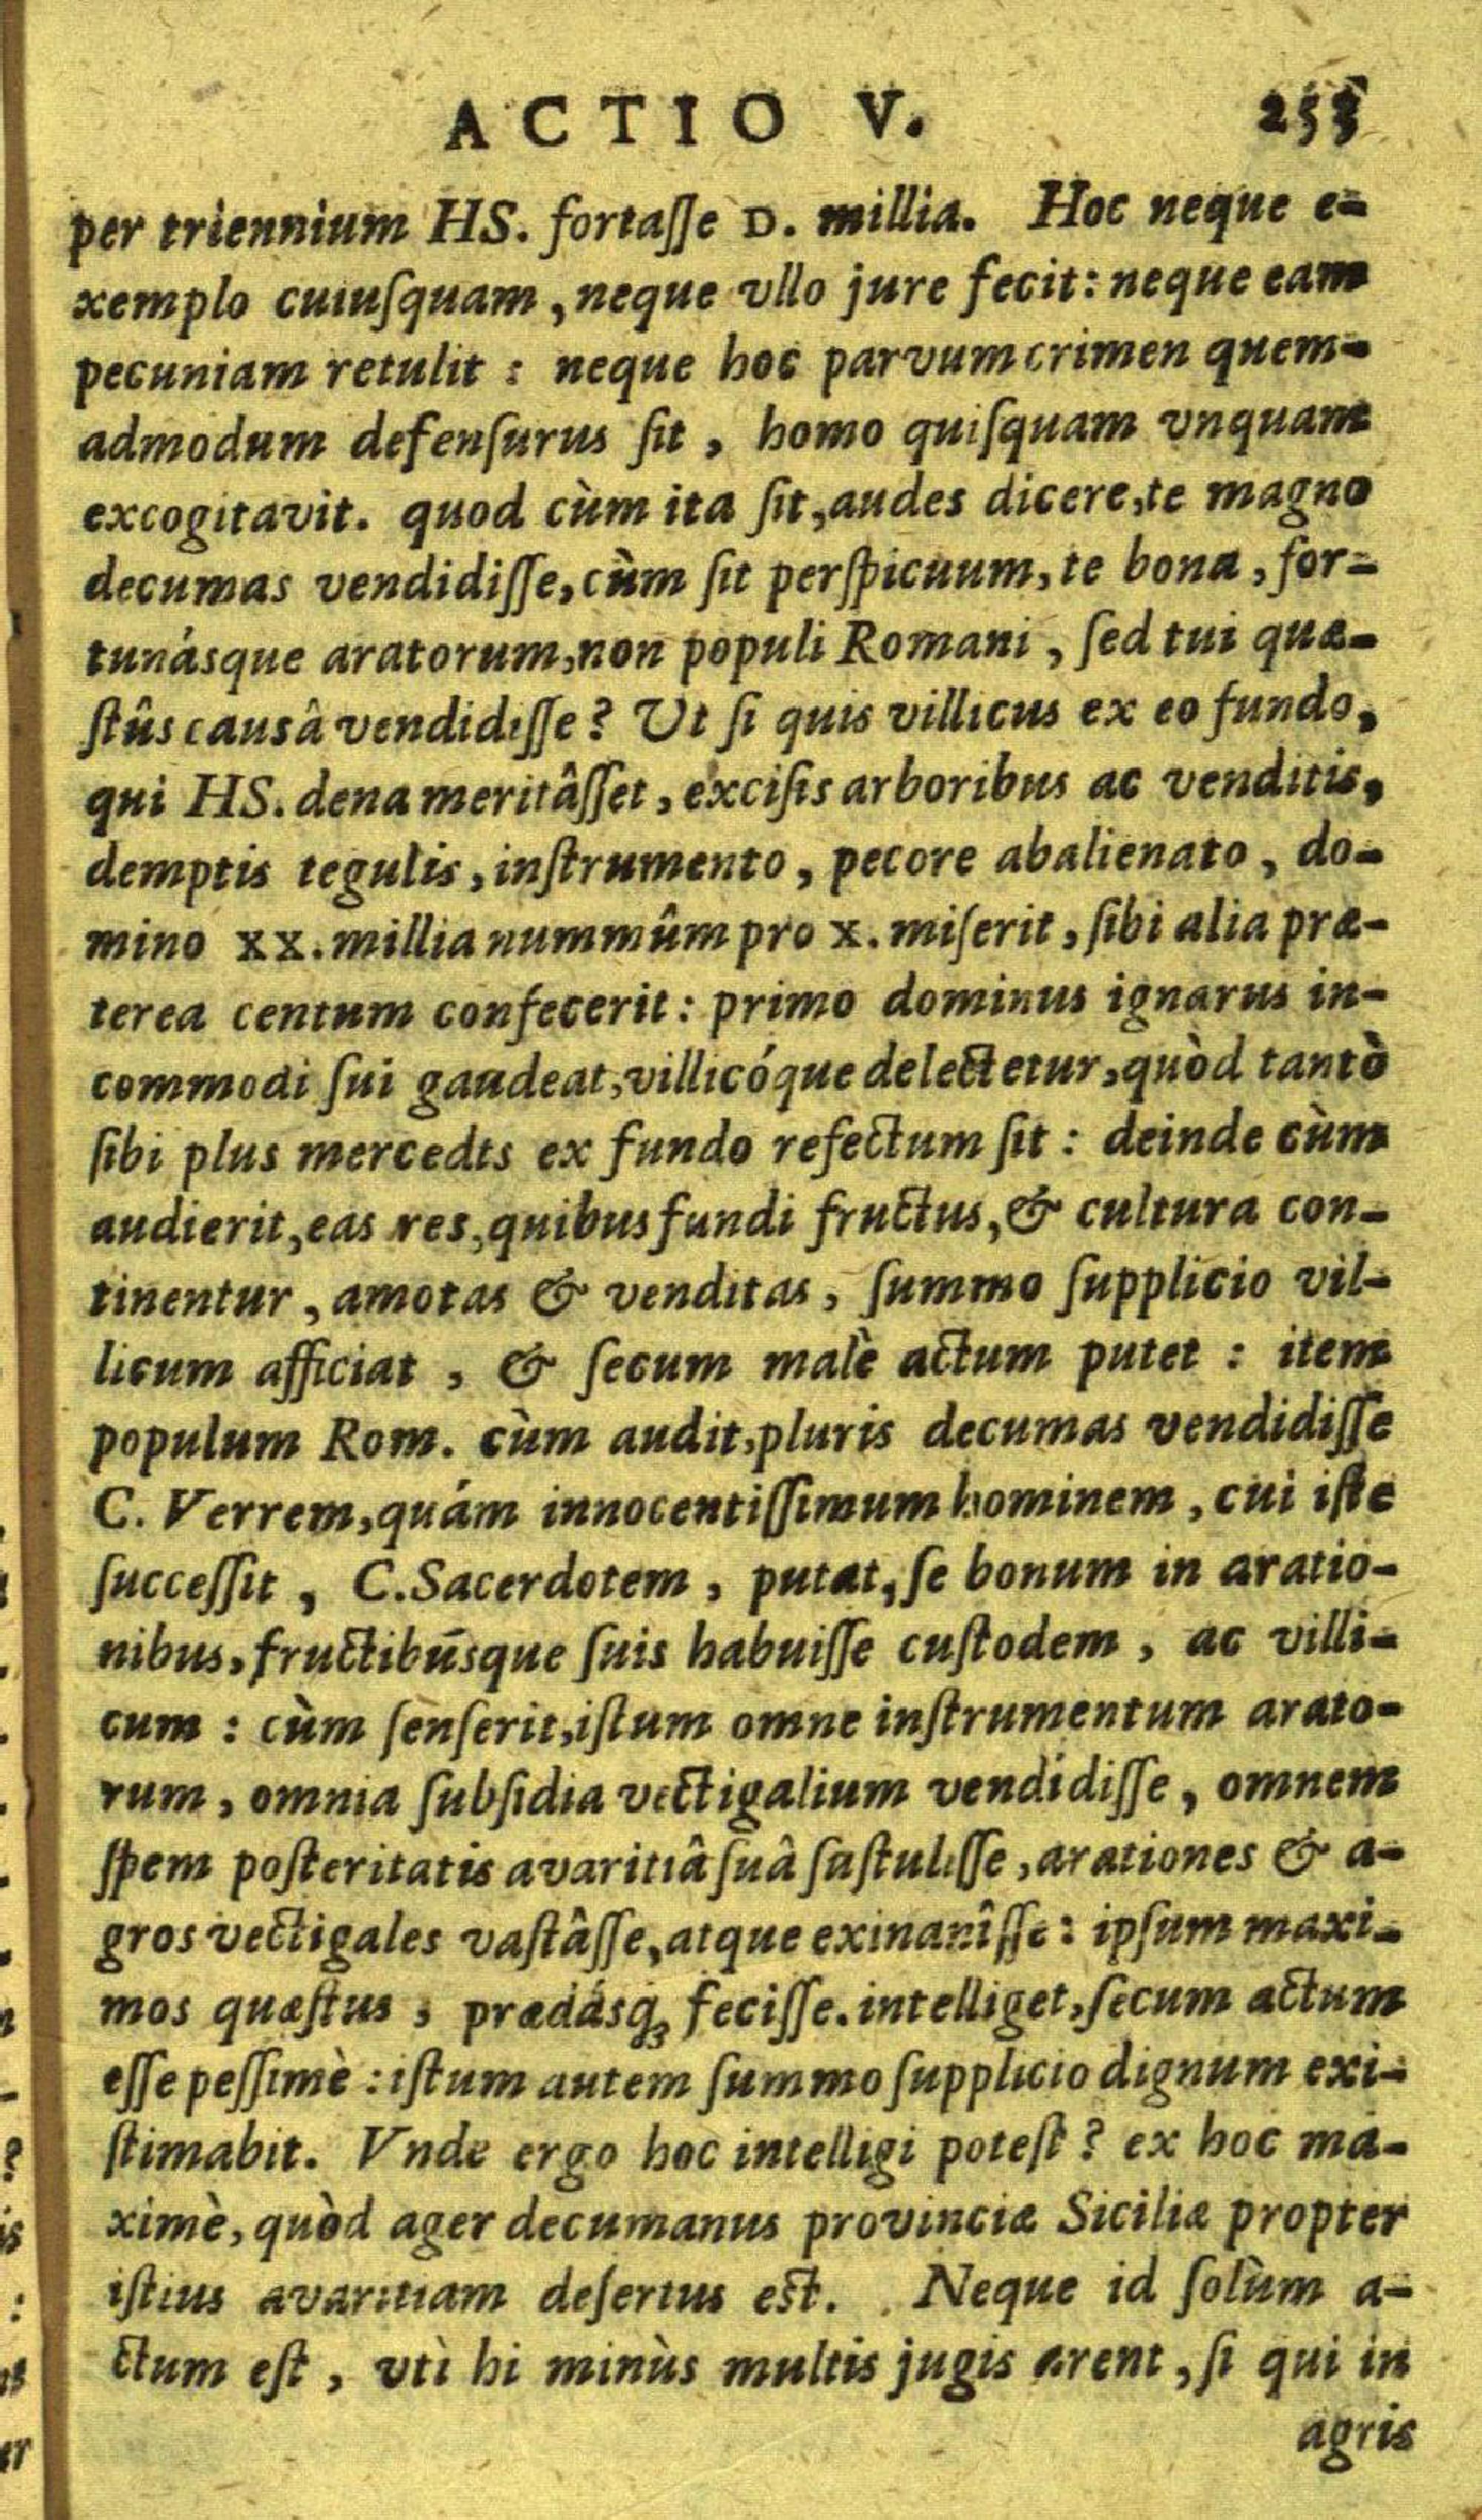 ACTIO V. 253
per triennium HS. fortaſſe D. millia. Hoc neque e-
xemplo cuiuſquam, neque vllo jure fecit: neque eam
pecuniam retulit: neque hoc parvum crimen quem-
admodum defenſurus ſit, homo quiſquam vnquam
excogitavit. quod cùm ita ſit, audes dicere, te magno
decumas vendidiſſe, cùm ſit perſpicuum, te bona, for-
tunásque aratorum, non populi Romani, ſed tui quæ-
ſtûs causâ vendidiſſe? Ut ſi quis villicus ex eo fundo,
qui HS. dena meritâſſet, exciſis arboribus ac venditis,
demptis tegulis, inſtrumento, pecore abalienato, do-
mino XX. millia nummûm pro X. miſerit, ſibi alia præ-
terea centum confecerit: primo dominus ignarus in-
commodi ſui gaudeat, villicóque delectetur, quòd tantò
ſibi plus mercedis ex fundo refectum ſit: deinde cùm
audierit, eas res, quibus fundi fructus, & cultura con-
tinentur, amotas & venditas, ſummo ſupplicio vil-
licum afficiat, & ſecum malè actum putet: item
populum Rom. cùm audit, pluris decumas vendidiſſe
C. Verrem, quám innocentiſſimum hominem, cui iſte
ſucceſſit, C. Sacerdotem, putat, ſe bonum in aratio-
nibus, fructibúsque ſuis habuiſſe cuſtodem, ac villi-
cum: cùm ſenſerit, iſtum omne inſtrumentum arato-
rum, omnia ſubſidia vectigalium vendidiſſe, omnem
ſpem poſteritatis avaritiâ ſuâ ſuſtuliſſe, arationes & a-
gros vectigales vaſtâſſe, atque exinanîſſe: ipſum maxi-
mos quæſtus, prædásq; feciſſe. intelliget, ſecum actum
eſſe peſſimè: iſtum autem ſummo ſupplicio dignum exi-
ſtimabit. Vnde ergo hoc intelligi poteſt? ex hoc ma-
ximè, quòd ager decumanus provinciæ Siciliæ propter
iſtius avaritiam deſertus eſt. Neque id ſolùm a-
ctum eſt, vtì hi minùs multis jugis arent, ſi qui in
agris